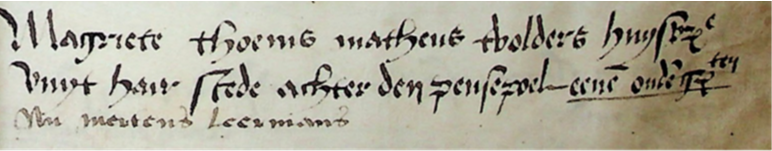 Magriete thoems matheus tvolders huysfr e
vuyt hair stede achter den pensepoel eenē oudē gr ten
Nu mertens Leermans